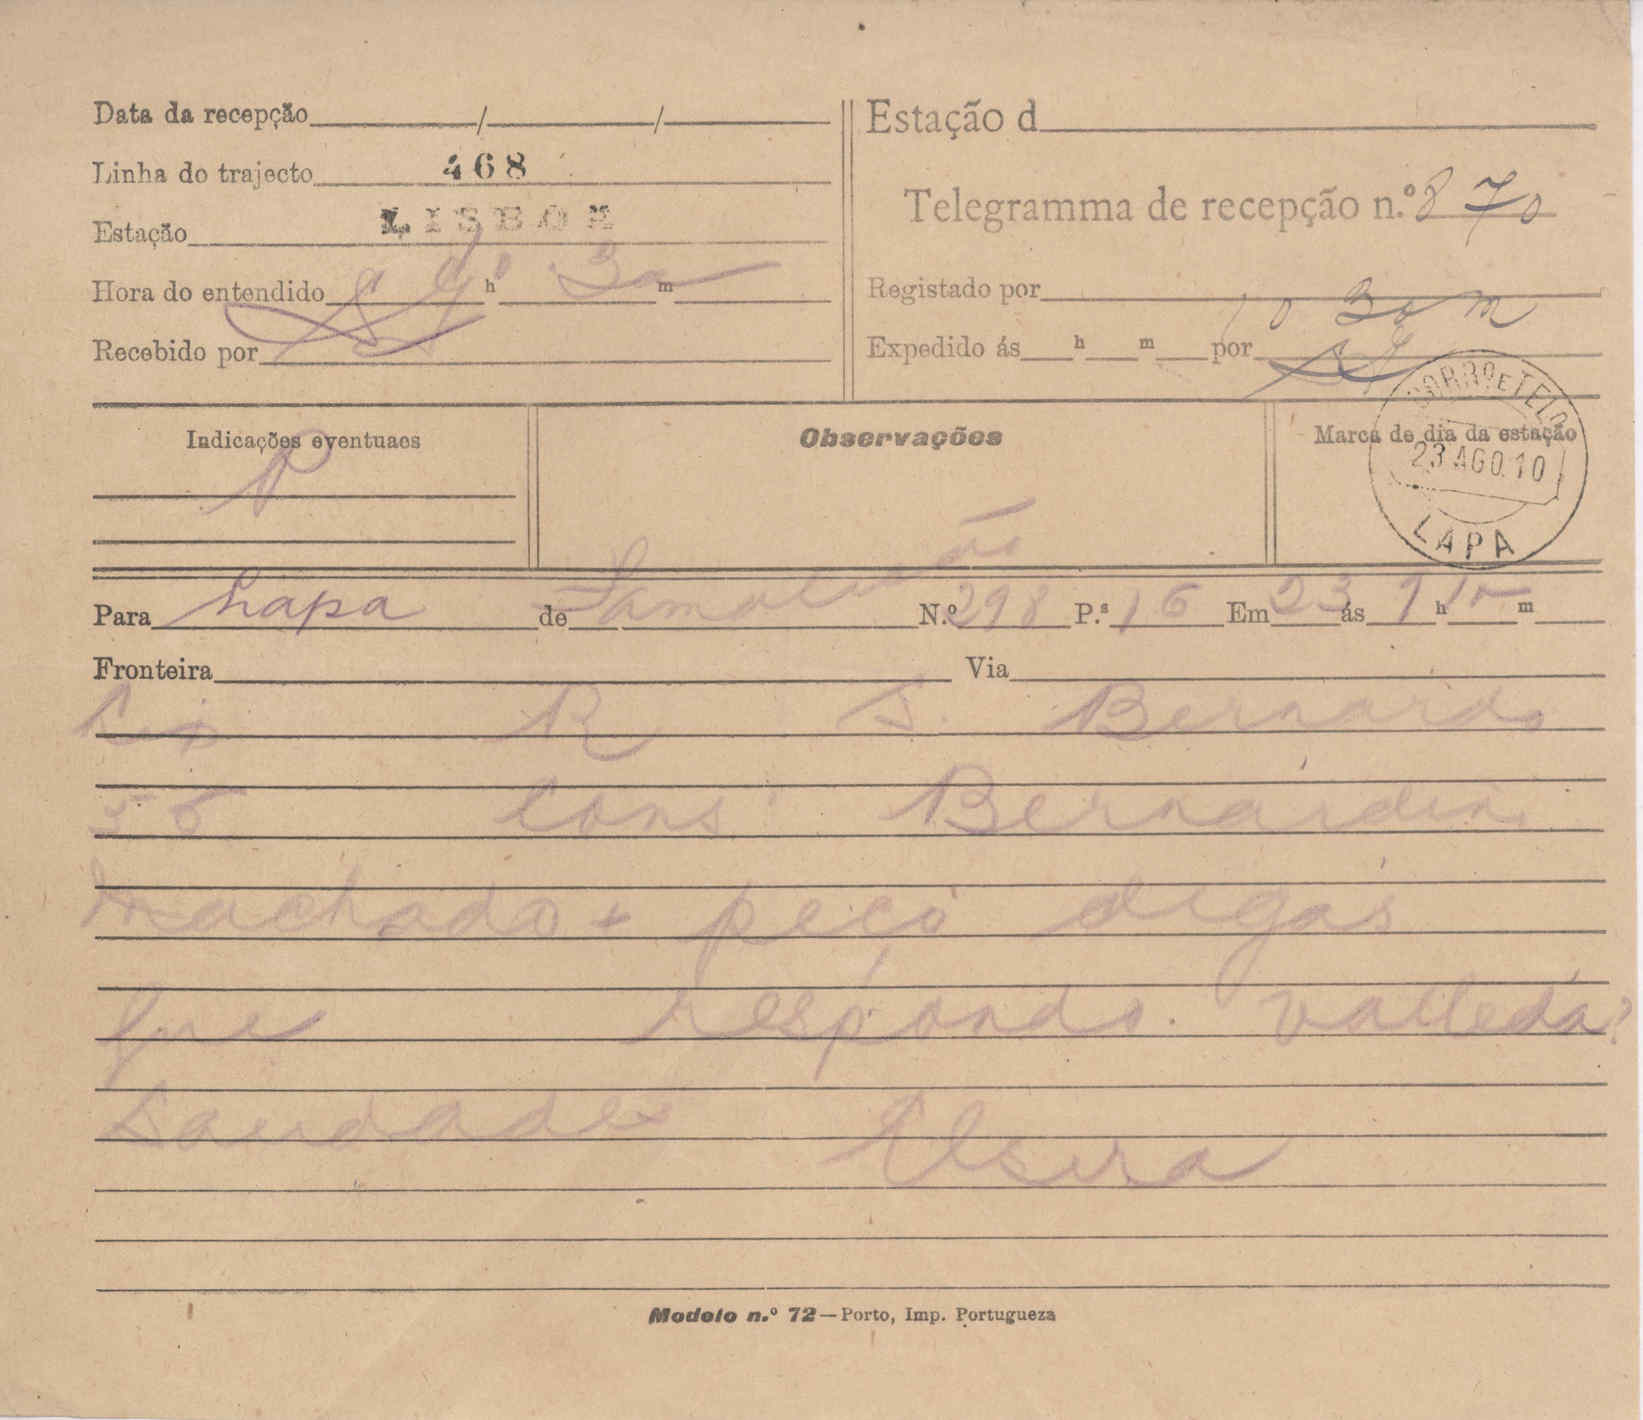 Data da recepção / /
Linha do trajecto 468
Estação LISBOA
Hora do entendido h m
Recebido por
Estação d
Telegramma de recepção n.º 870
Registado por
Expedido ás h m por
10 30 m
Indicações eventuaes
P
Observações
Marca de dia da estação
CORRO E TELO
23 AGO. 10
LAPA
Para Lapa de Famalicão N.º 298 P.s 16 Em 23 ás 9 h 10 m
Fronteira Via
Lix R S. Bernardo
56 Cons Bernardino
Machado = peço digas
que respondo Valleda?
Saudades Elzira
Modelo n.º 72—Porto, Imp. Portugueza